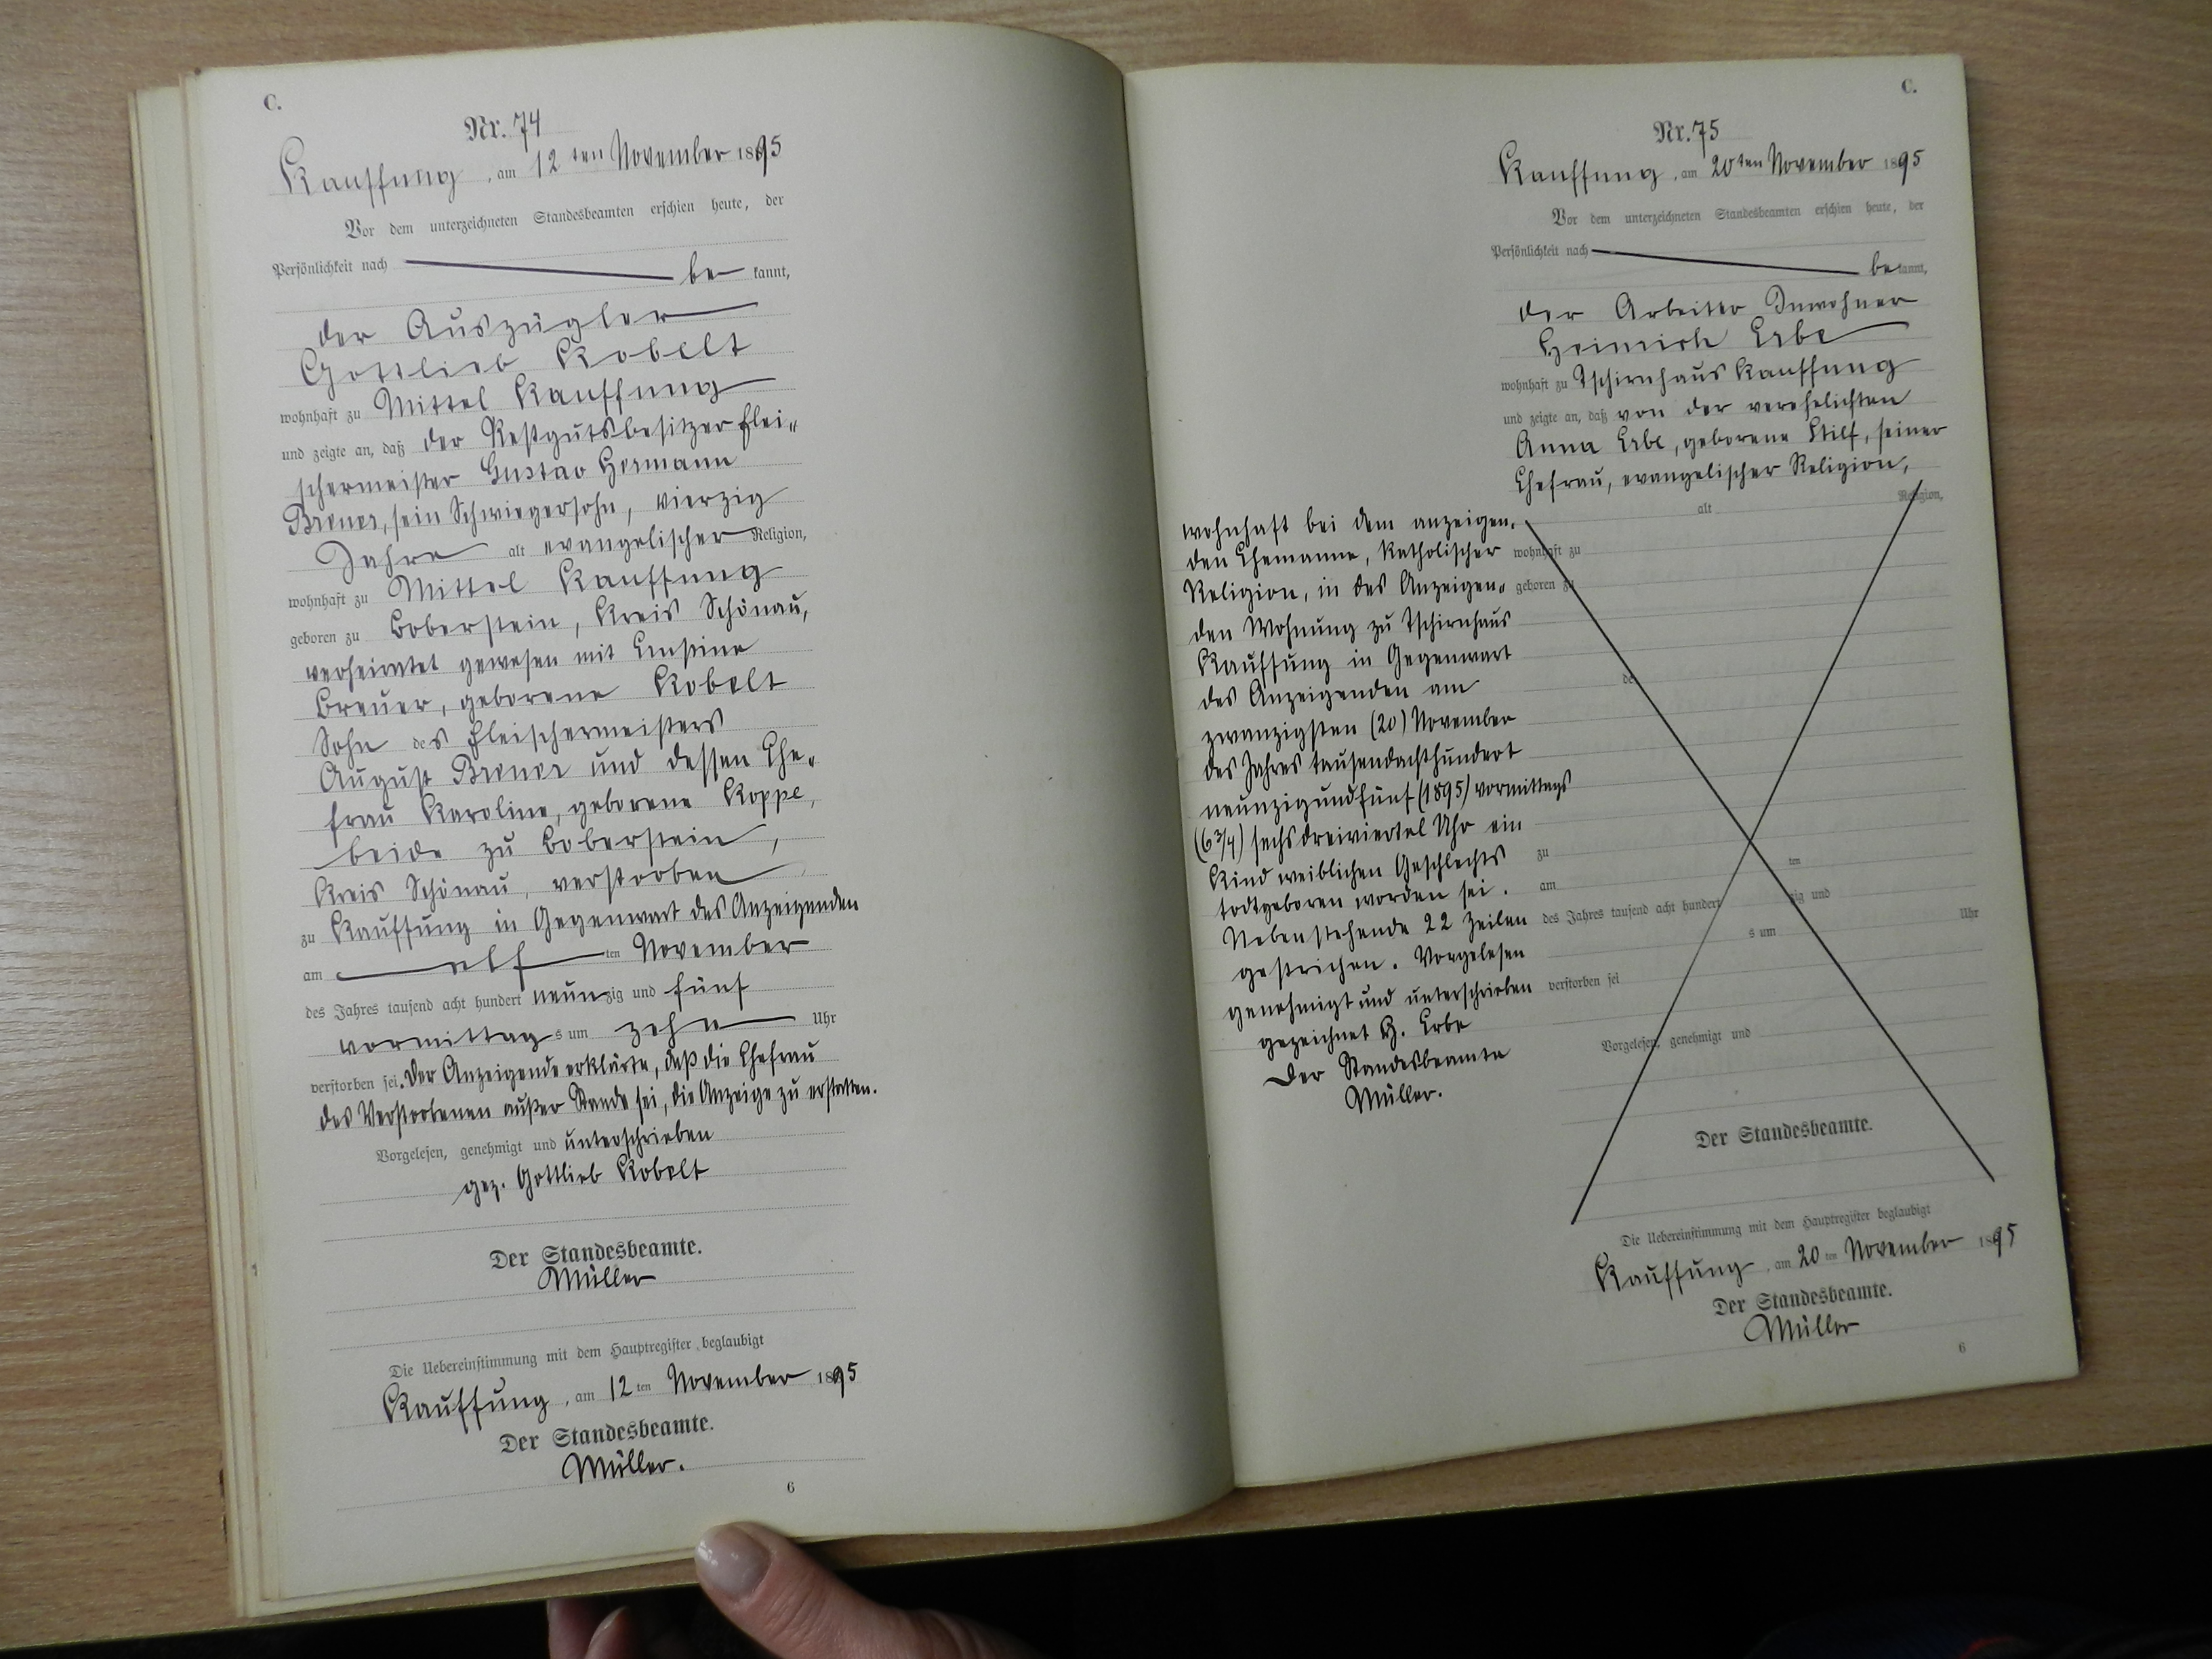 C.
Nr. 74
Kauffung, am 12ten November 1895
Vor dem unterzeichneten Standesbeamten erschien heute, der
Persönlichkeit nach
be kannt,
der Auszügler
Gottlieb Kobelt
wohnhaft zu Mittel Kauffung
und zeigte an, daß der Restgutsbesitzer Flei-
schermeister Gustav Hermann
Breuer, sein Schwiegersohn, vierzig
Jahre alt evangelischer Religion,
wohnhaft zu Mittel Kauffung
geboren zu Boberstein, Kreis Schönau,
verheiratet gewesen mit Ernstine
Breuer, geborene Kobelt
Sohn des Fleischermeisters
August Breuer und dessen Ehe-
frau Karoline, geborene Koppe,
beide zu Boberstein,
Kreis Schönau, verstorben
zu Kauffung in Gegenwart des Anzeigenden
am elf ten November
des Jahres tausend acht hundert neunzig und fünf
vormittags um zehn Uhr
verstorben sei. Der Anzeigende erklärte, daß die Ehefrau
des Verstorbenen außer Stande sei, die Anzeige zu erstatten.
Vorgelesen, genehmigt und unterschrieben
gez. Gottlieb Kobelt
Der Standesbeamte.
Müller
Die Uebereinstimmung mit dem Hauptregister beglaubigt
Kauffung, am 12ten November 1895
Der Standesbeamte.
Müller.
6
C.
Nr. 75
Kauffung, am 20ten November 1895
Vor dem unterzeichneten Standesbeamten erschien heute, der
Persönlichkeit nach
bekannt,
der Arbeiter Inwohner
Heinrich Erbe
wohnhaft zu Tschirnhaus Kauffung
und zeigte an, daß von der verehelichten
Anna Erbe, geborene Stilf, seiner
Ehefrau, evangelischer Religion,
alt Religion,
wohnhaft bei dem anzeigen-
den Ehemanne, katholischer
Religion, in des Anzeigen-
den Wohnung zu Tschirnhaus
Kauffung in Gegenwart
des Anzeigenden am
zwanzigsten (20) November
des Jahres tausendachthundert
neunzigundfünf (1895) vormittags
(6 3/4) sechsdreiviertel Uhr ein
Kind weiblichen Geschlechts
todtgeboren worden sei.
Nebenstehende 22 Zeilen
gestrichen. Vorgelesen
genehmigt und unterschrieben
gezeichnet H. Erbe
Der Standesbeamte
Müller.
wohnhaft zu
geboren zu
de
zu
ten
am
des Jahres tausend acht hundert zig und
s um Uhr
verstorben sei
Vorgelesen, genehmigt und
Der Standesbeamte.
Die Uebereinstimmung mit dem Hauptregister beglaubigt
Kauffung, am 20ten November 1895
Der Standesbeamte.
Müller
6